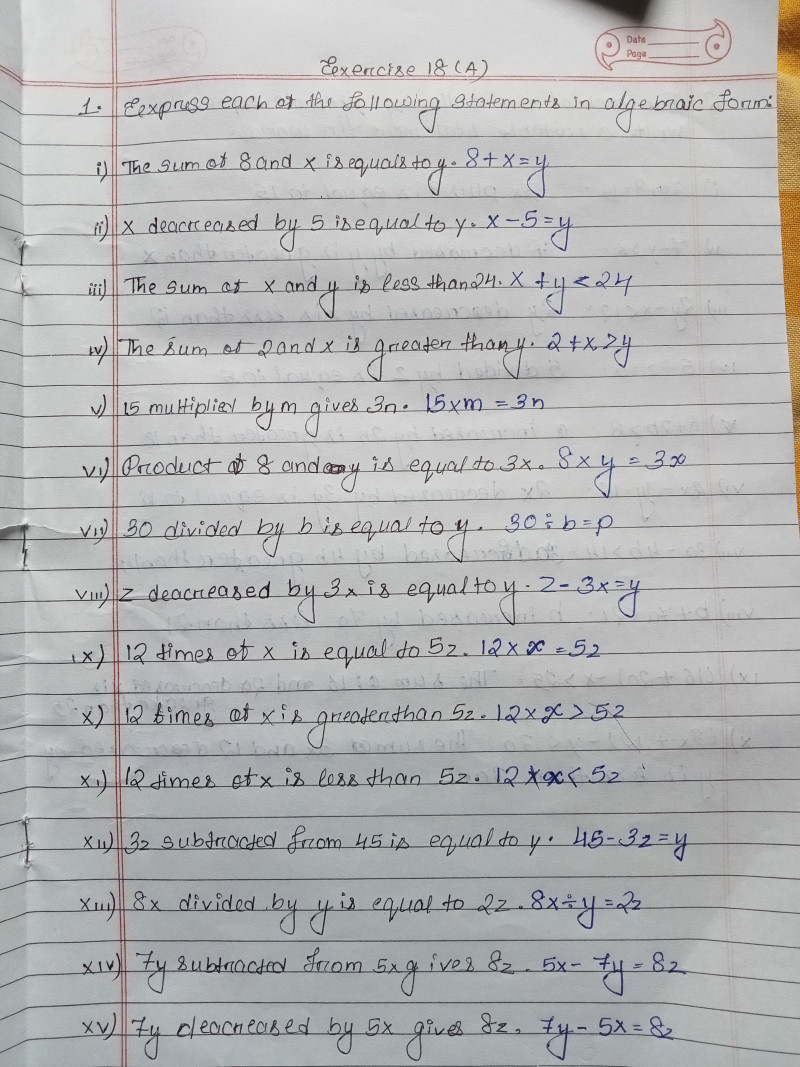 Date
Page
Eexercise 18 (A)
1. Eexpress each of the following statements in algebraic form:
i) The sum of 8 and x is equals to y. 8 + x = y
ii) x deacreased by 5 is equal to y. x - 5 = y
iii) The sum of x and y is less than 24. x + y < 24
iv) The sum of 2 and x is greater than y. 2 + x > y
v) 15 multiplied by m gives 3n. 15 x m = 3n
vi) Product of 8 and y is equal to 3x. 8 x y = 3x
vii) 30 divided by b is equal to y. 30 ÷ b = p
viii) z deacreased by 3x is equal to y. z - 3x = y
ix) 12 times of x is equal to 5z. 12 x x = 5z
x) 12 times of x is greater than 5z. 12 x x > 5z
xi) 12 times of x is less than 5z. 12 x x < 5z
xii) 3z subtracted from 45 is equal to y. 45 - 3z = y
xiii) 8x divided by y is equal to 2z. 8x ÷ y = 2z
xiv) 7y subtracted from 5x gives 8z. 5x - 7y = 8z
xv) 7y deacreased by 5x gives 8z. 7y - 5x = 8z